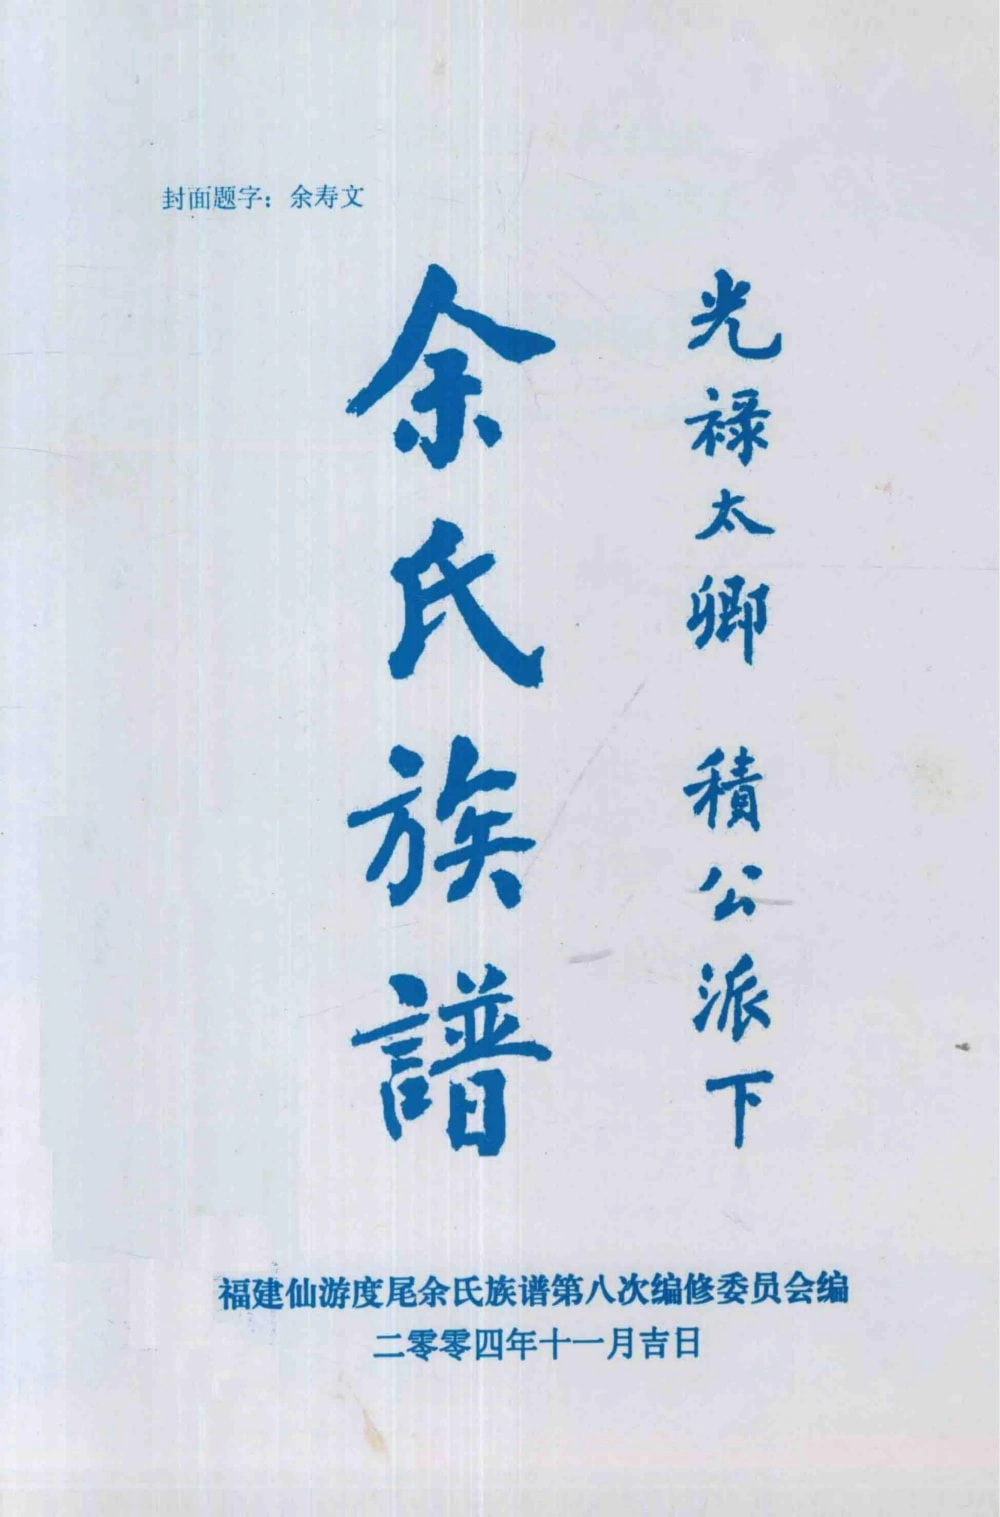 封面题字：余寿文
光禄太卿 積公派下
余氏族譜
福建仙游度尾余氏族谱第八次编修委员会编
二零零四年十一月吉日